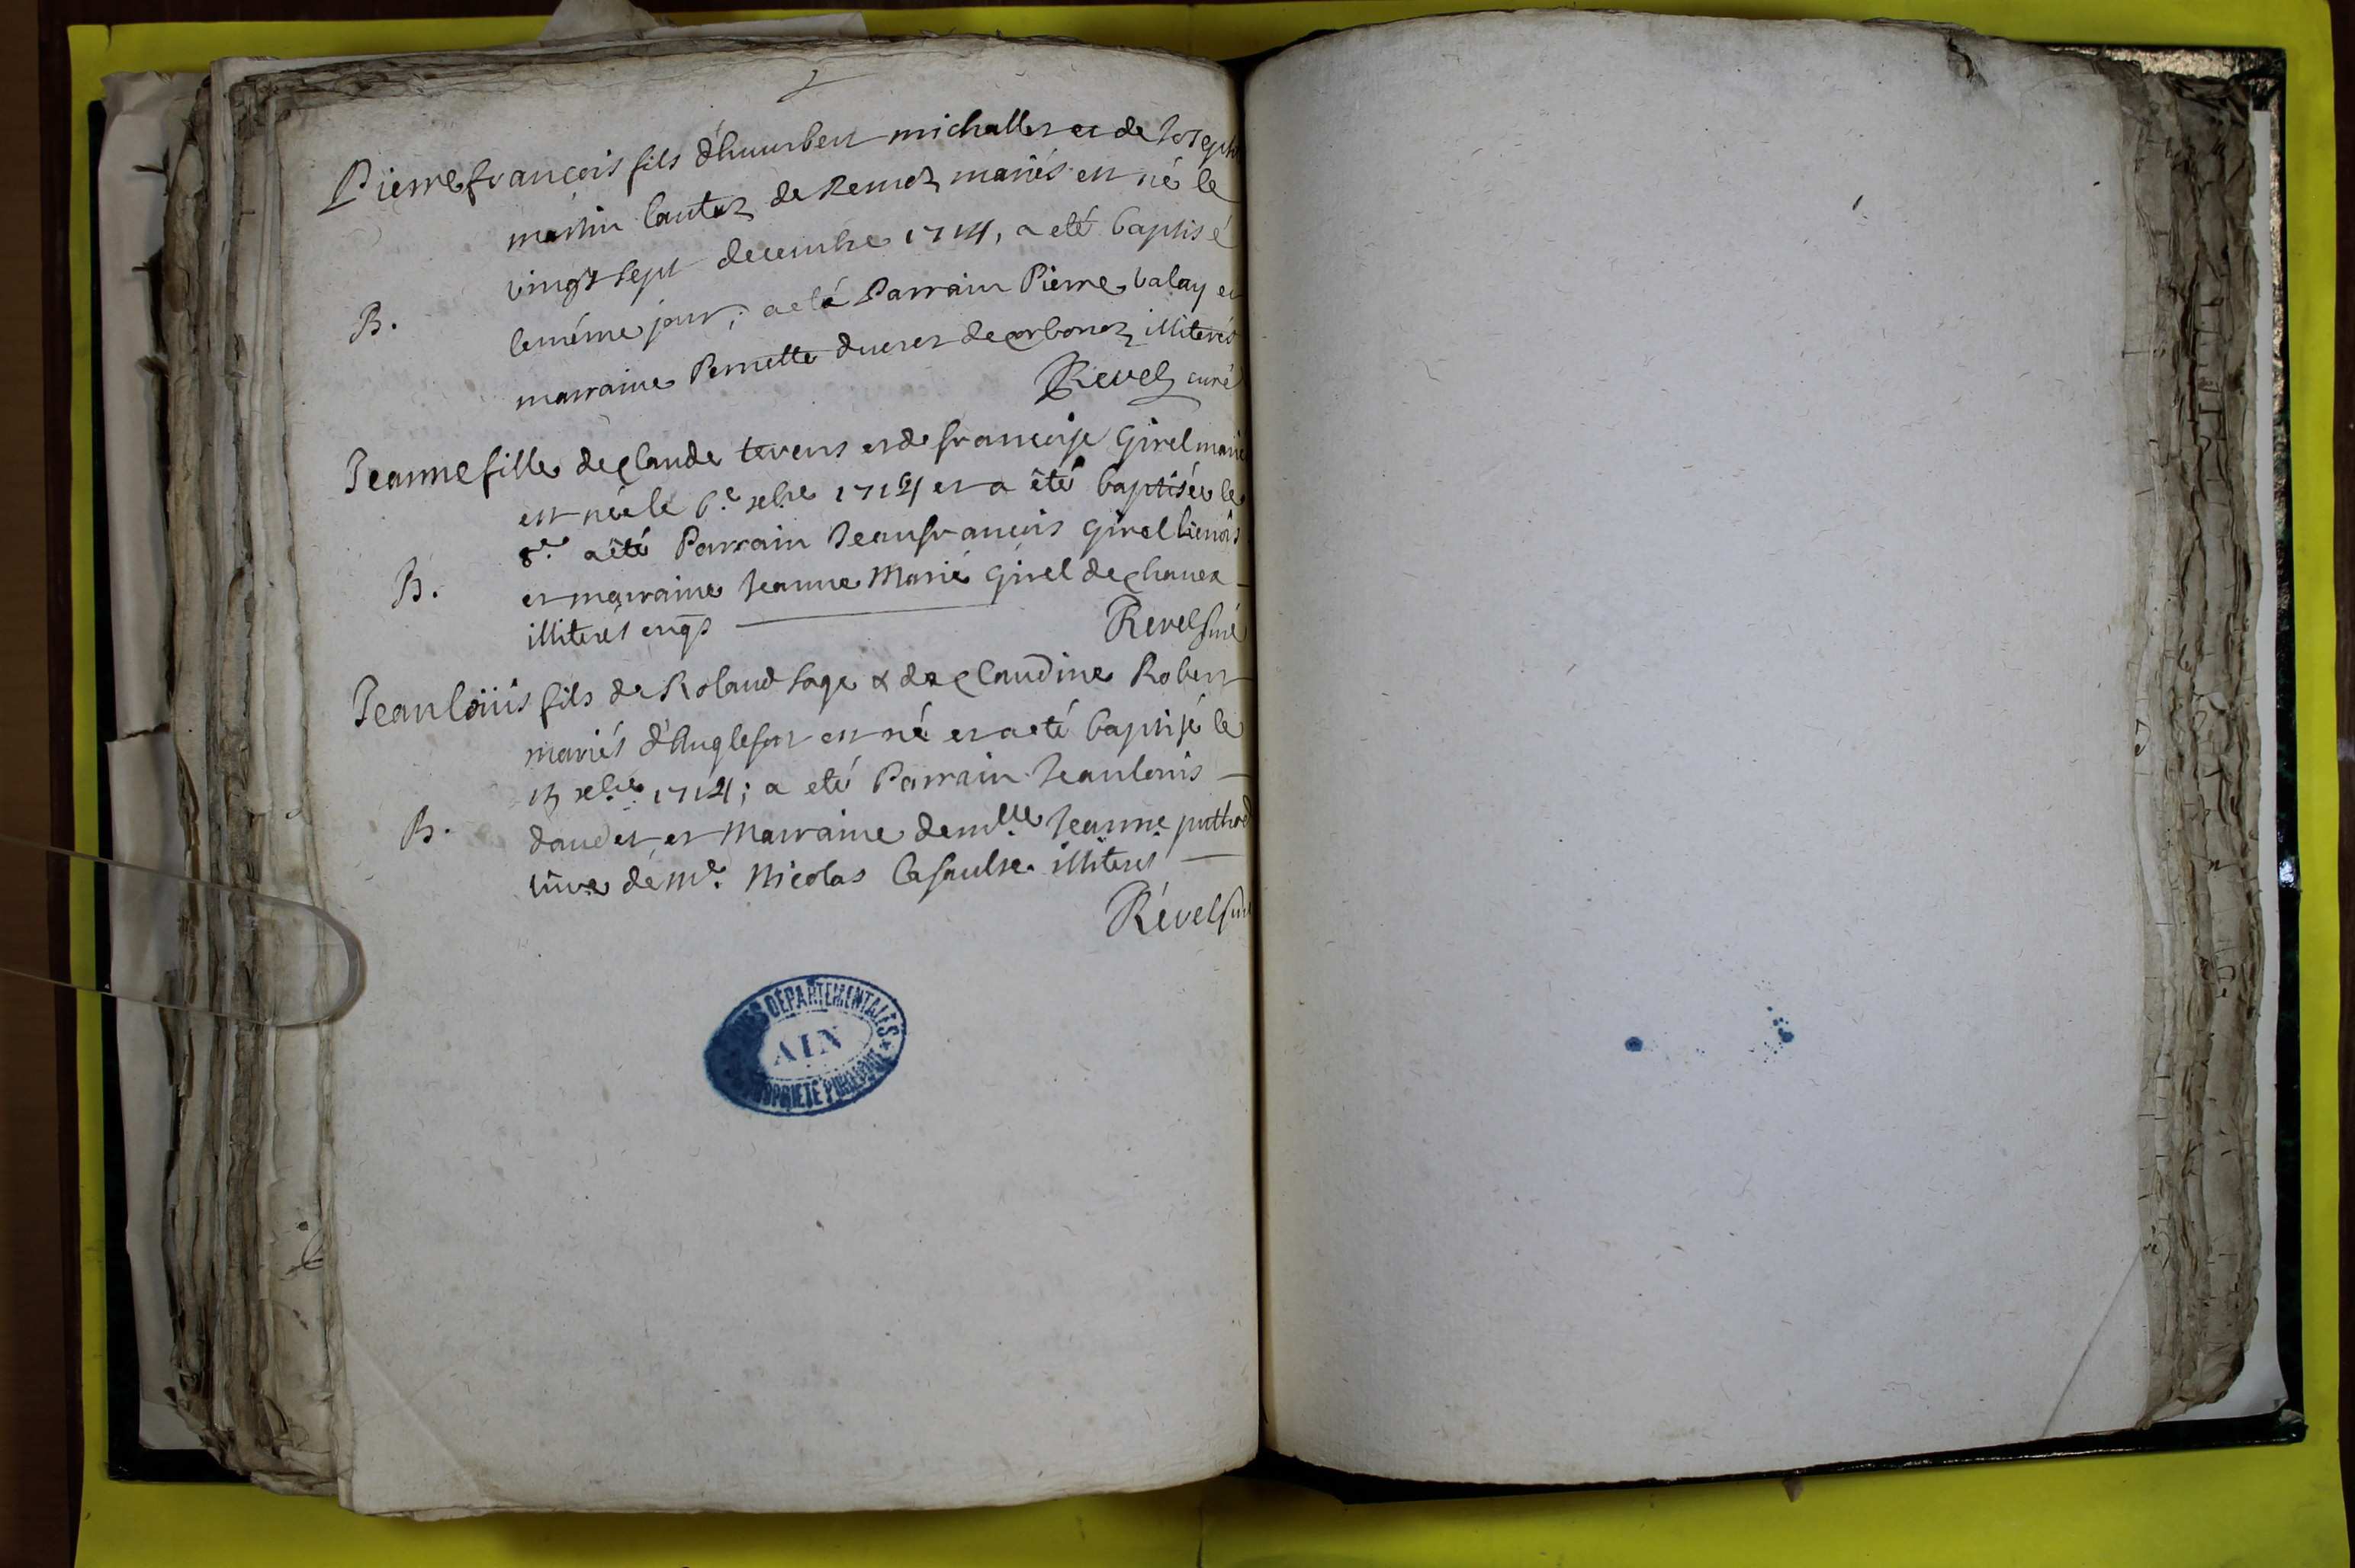 Pierre françois fils d'humbert michallet et de Joseph
martin lautez de Remoz mariés est né le
vingt sept decembre 1714, a eté baptisé
B.
le méme jour; a eté Parrain Pierre balay et
marraine Pernette ducret de corbonoz illiterés
Revel curé
Jeanne fille de Claude tevens et de françoise Girel mariés
est née le 6.e xbre 1714 et a êté baptisée le
8.e a êté Parrain Jeanfrançois Girel
B.
et marraine Jeanne Marie Girel de chanex
illiterés enqs
Revel curé
Jean loüis fils de Roland sage & de Claudine Robert
mariés d'Anglefort est né et a eté baptisé le
xbre 1714; a eté Parrain Jean louis
B.
daudet et Marraine demlle Jeanne puthod
de me. Nicolas illiterés
Révél curé
ARCHIVES DÉPARTEMENTALES
AIN
PROPRIÉTÉ PUBLIQUE